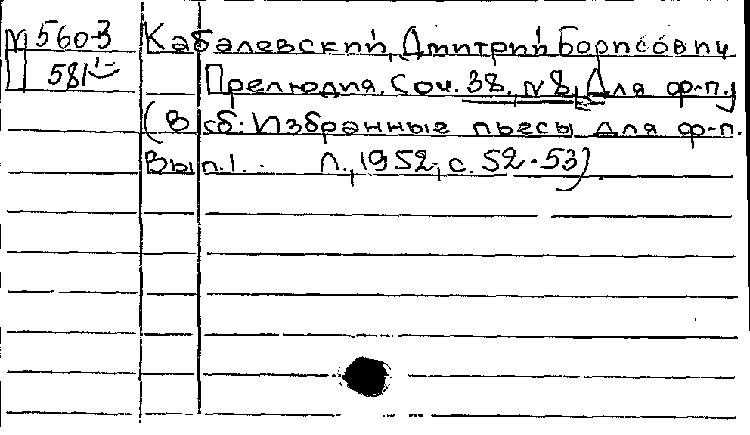 М 560-3 Кабалевский, Дмитрий Борисович
П 581 Прелюдия. Соч. 38, №8, Для ф-п.
(В сб: Избранные пьесы для ф-п.
Вып. 1. Л., 1952, с. 52-53)